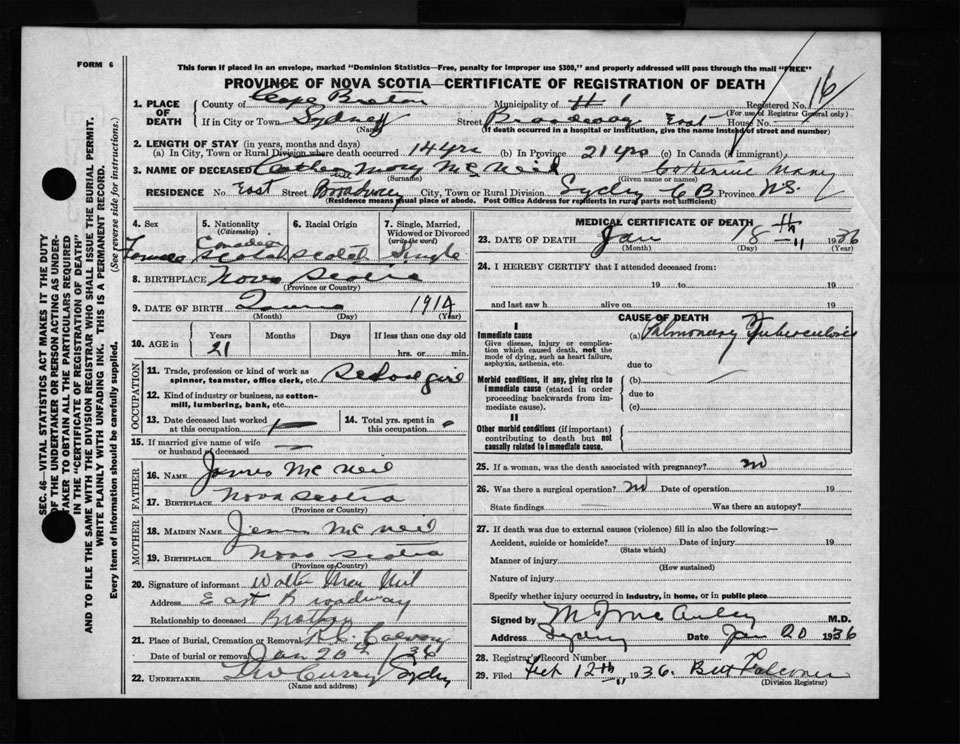 FORM 6
This form if placed in an envelope, marked "Dominion Statistics—Free, penalty for improper use $300," and properly addressed will pass through the mail "FREE"
PROVINCE OF NOVA SCOTIA—CERTIFICATE OF REGISTRATION OF DEATH
1. PLACE OF DEATH
County of Cape Breton Municipality of # 1 Registered No. 16
(For use of Registrar General only)
If in City or Town Sydney Street Broadway East House No.
(Name) (If death occurred in a hospital or institution, give the name instead of street and number)
2. LENGTH OF STAY (in years, months and days)
(a) In City, Town or Rural Division where death occurred 14 yrs (b) In Province 21 yrs (c) In Canada (if immigrant)
3. NAME OF DECEASED Mary McNeil Catherine Mary
(Surname) (Given name or names)
RESIDENCE No. East Street Broadway City, Town or Rural Division Sydney C B Province NS
(Residence means usual place of abode. Post Office Address for residents in rural parts not sufficient)
4. Sex Female
5. Nationality (Citizenship) Canadian Scotch
6. Racial Origin Scotch
7. Single, Married, Widowed or Divorced (write the word) Single
8. BIRTHPLACE Nova Scotia
(Province or Country)
9. DATE OF BIRTH 1914
(Month) (Day) (Year)
10. AGE in Years Months Days If less than one day old
21 hrs. or min.
OCCUPATION
11. Trade, profession or kind of work as spinner, teamster, office clerk, etc. School girl
12. Kind of industry or business, as cotton-mill, lumbering, bank, etc.
13. Date deceased last worked at this occupation
14. Total yrs. spent in this occupation
15. If married give name of wife or husband of deceased
FATHER
16. NAME James McNeil
17. BIRTHPLACE Nova Scotia
(Province or Country)
MOTHER
18. MAIDEN NAME McNeil
19. BIRTHPLACE Nova Scotia
(Province or Country)
20. Signature of informant Walter MacNeil
Address East Broadway
Relationship to deceased Brother
21. Place of Burial, Cremation or Removal R.C. Calvary
Date of burial or removal Jan 20th /36
22. UNDERTAKER Curry Sydney
(Name and address)
MEDICAL CERTIFICATE OF DEATH
23. DATE OF DEATH Jan 18th 1936
(Month) (Day) (Year)
24. I HEREBY CERTIFY that I attended deceased from:
19 to 19
and last saw h alive on 19
CAUSE OF DEATH
I
Immediate cause (a) Pulmonary Tuberculosis
Give disease, injury, or complication which caused death, not the mode of dying, such as heart failure, asphyxia, asthenia, etc.
due to
Morbid conditions, if any, giving rise to immediate cause (stated in order proceeding backwards from immediate cause).
(b)
due to
(c)
II
Other morbid conditions (if important) contributing to death but not causally related to immediate cause.
25. If a woman, was the death associated with pregnancy? no
26. Was there a surgical operation? no Date of operation 19
State findings Was there an autopsy?
27. If death was due to external causes (violence) fill in also the following:—
Accident, suicide or homicide? Date of injury 19
(State which)
Manner of injury
(How sustained)
Nature of injury
Specify whether injury occurred in industry, in home, or in public place
Signed by M J McAuley M.D.
Address Sydney Date Jan 20 1936
28. Registrar's Record Number
29. Filed Feb 12th 1936. Falconer
(Division Registrar)
SEC. 46—VITAL STATISTICS ACT MAKES IT THE DUTY
OF THE UNDERTAKER OR PERSON ACTING AS UNDER-
TAKER TO OBTAIN ALL THE PARTICULARS REQUIRED
IN THE "CERTIFICATE OF REGISTRATION OF DEATH"
AND TO FILE THE SAME WITH THE DIVISION REGISTRAR WHO SHALL ISSUE THE BURIAL PERMIT.
WRITE PLAINLY WITH UNFADING INK. THIS IS A PERMANENT RECORD.
Every item of Information should be carefully supplied. (See reverse side for instructions.)